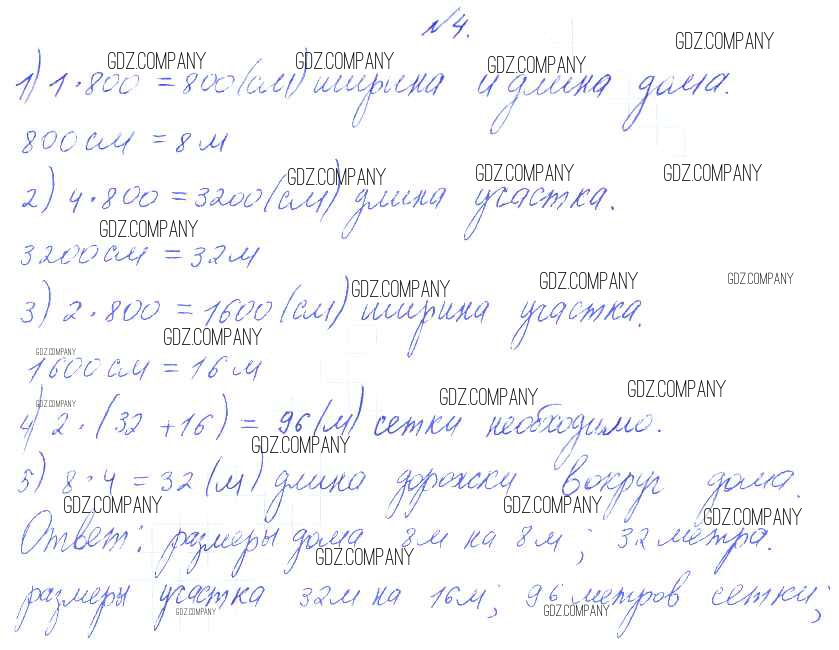 №4.
GDZ.COMPANY
GDZ.COMPANY GDZ.COMPANY GDZ.COMPANY
1) 1·800 = 800 (см) ширина и длина дома.
800 см = 8 м
GDZ.COMPANY GDZ.COMPANY GDZ.COMPANY
2) 4·800 = 3200 (см) длина участка.
GDZ.COMPANY
3200 см = 32 м
GDZ.COMPANY GDZ.COMPANY GDZ.COMPANY
3) 2·800 = 1600 (см) ширина участка.
GDZ.COMPANY
GDZ.COMPANY
1600 см = 16 м
GDZ.COMPANY GDZ.COMPANY GDZ.COMPANY
4) 2·(32 + 16) = 96 (м) сетки необходимо.
GDZ.COMPANY
5) 8·4 = 32 (м) длина дорожки вокруг дома.
GDZ.COMPANY GDZ.COMPANY GDZ.COMPANY
Ответ: размеры дома 8м на 8м; 32 метра.
GDZ.COMPANY
размеры участка 32м на 16м; 96 метров сетки;
GDZ.COMPANY GDZ.COMPANY